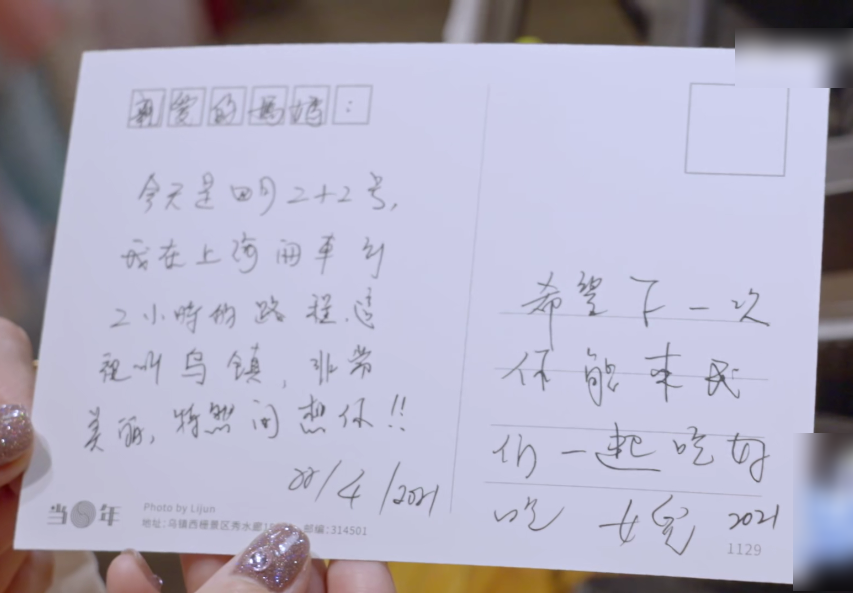 親愛的媽媽：
今天是四月2+2号，
我在上海開車到
2小時的路程，這
裡叫烏鎮，非常
美丽，特然间想你!!
22/4/2021
希望下一次
你能来我
们一起吃好
吃
2021
当年
Photo by Lijun
地址：乌镇西栅景区秀水廊 邮编：314501
1129